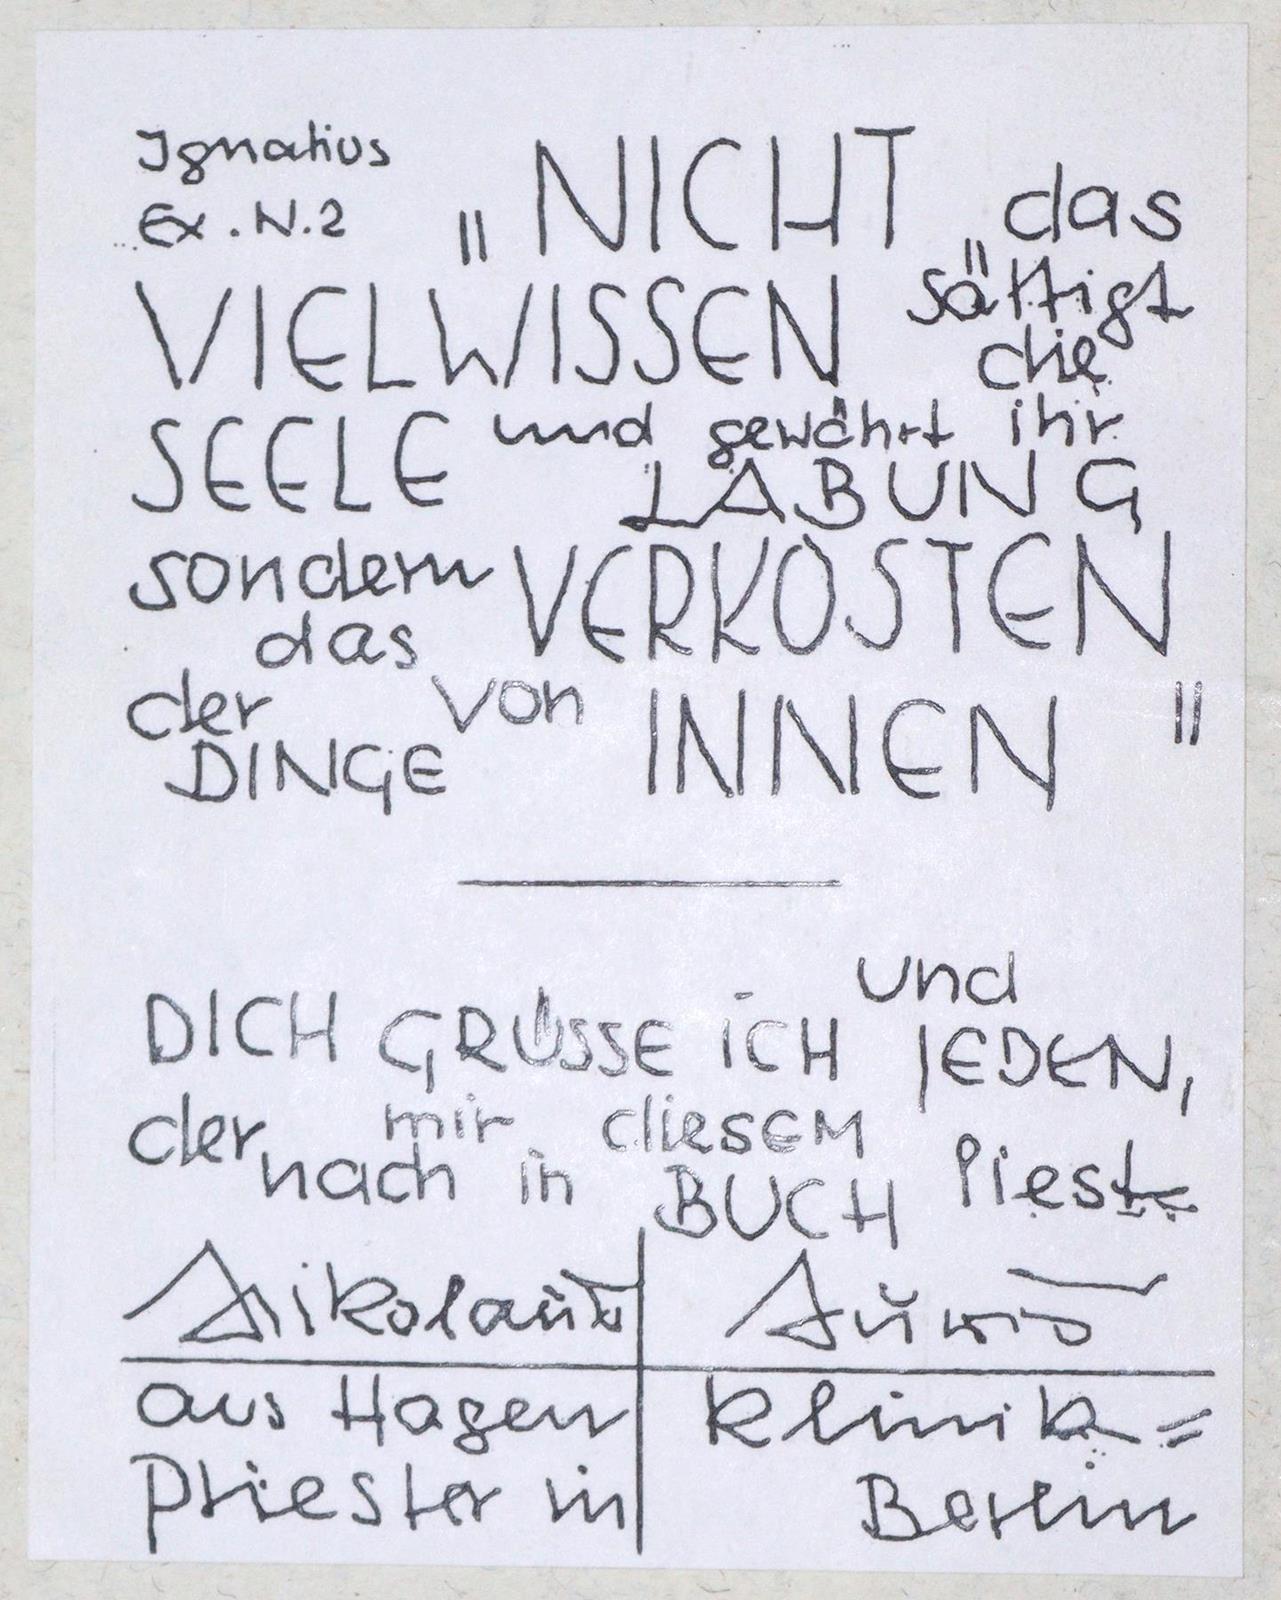 Ignatius
Ex. N. 2
„NICHT „das
VIELWISSEN sättigt
die
SEELE und gewährt ihr
LABUNG
sondern VERKOSTEN
das
der von INNEN"
DINGE
und
DICH GRÜSSE ICH JEDEN,
der mir diesem liest
nach in BUCH
Nikolaus
aus Hagen Klinik=
Priester in Berlin